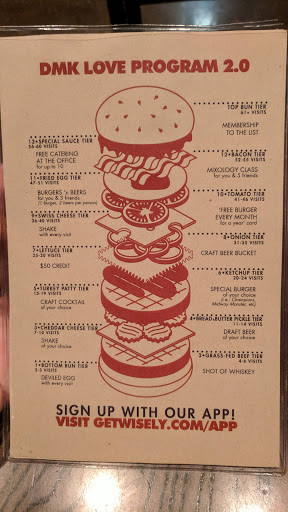 DMK LOVE PROGRAM 2.0
TOP BUN TIER
61+ VISITS
MEMBERSHIP
TO THE LIST
13•SPECIAL SAUCE TIER
56-60 VISITS
FREE CATERING
AT THE OFFICE
for up to 10
12•BACON TIER
52-55 VISITS
MIXOLOGY CLASS
for you & 5 friends
11•FRIED EGG TIER
47-51 VISITS
BURGERS 'n BEERS
for you & 5 friends
(1 burger, 2 beers per person)
10•TOMATO TIER
41-46 VISITS
'FREE BURGER
EVERY MONTH
for a year' card
9•SWISS CHEESE TIER
36-40 VISITS
SHAKE
with every visit
8•ONION TIER
31-35 VISITS
CRAFT BEER BUCKET
7•LETTUCE TIER
25-30 VISITS
$50 CREDIT
6•KETCHUP TIER
20-24 VISITS
SPECIAL BURGER
of your choice
5•TURKEY PATTY TIER
15-19 VISITS
CRAFT COCKTAIL
of your choice
BREAD+BUTTER PICKLE TIER
11-14 VISITS
DRAFT BEER
of your choice
3•CHEDDAR CHEESE TIER
7-10 VISITS
SHAKE
of your choice
2•GRASS-FED BEEF TIER
4-6 VISITS
SHOT OF WHISKEY
1•BOTTOM BUN TIER
2-3 VISITS
DEVILED EGG
with every visit
SIGN UP WITH OUR APP!
VISIT GETWISELY.COM/APP